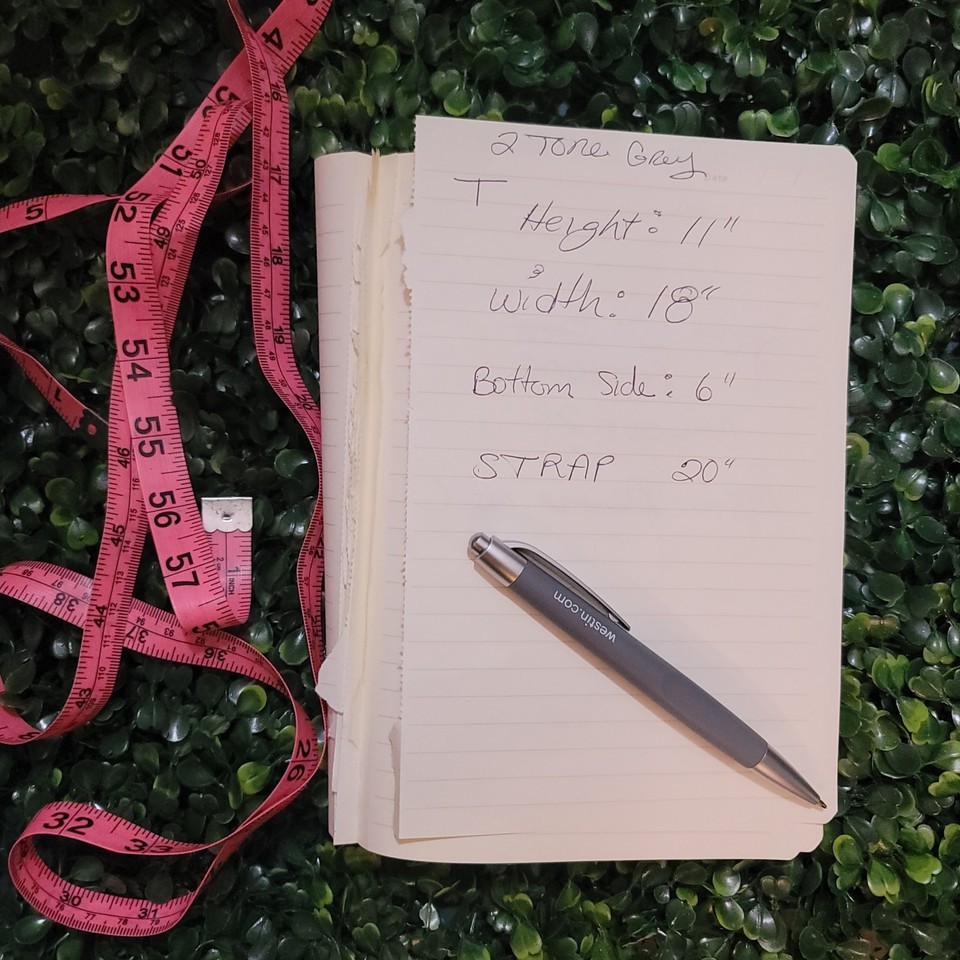 2 Tone Grey
T
Height: 11"
width: 18"
Bottom Side: 6"
STRAP 20"
westin.com
4
5
51
50
52
49
53
54
55
56
57
46
45
44
43
38
37
36
26
32
33
30
31
16
17
18
19
1 INCH